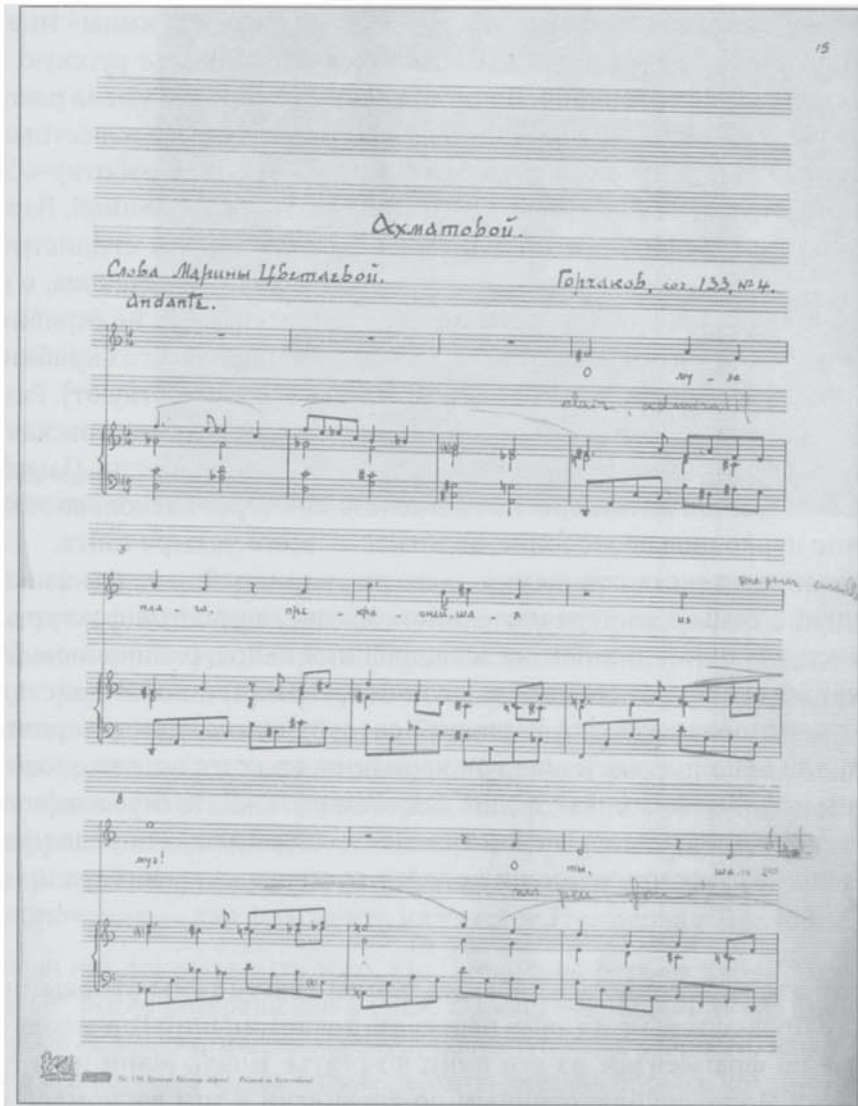 15
Ахматовой.
Слова Марины Цветаевой.
Горчаков, соч. 133, №4.
Andante.
О му - за
clair, admiratif
5
пла - ча, пре - кра - сней.ша - я из
8
муз! О ты, ша-ль
un peu